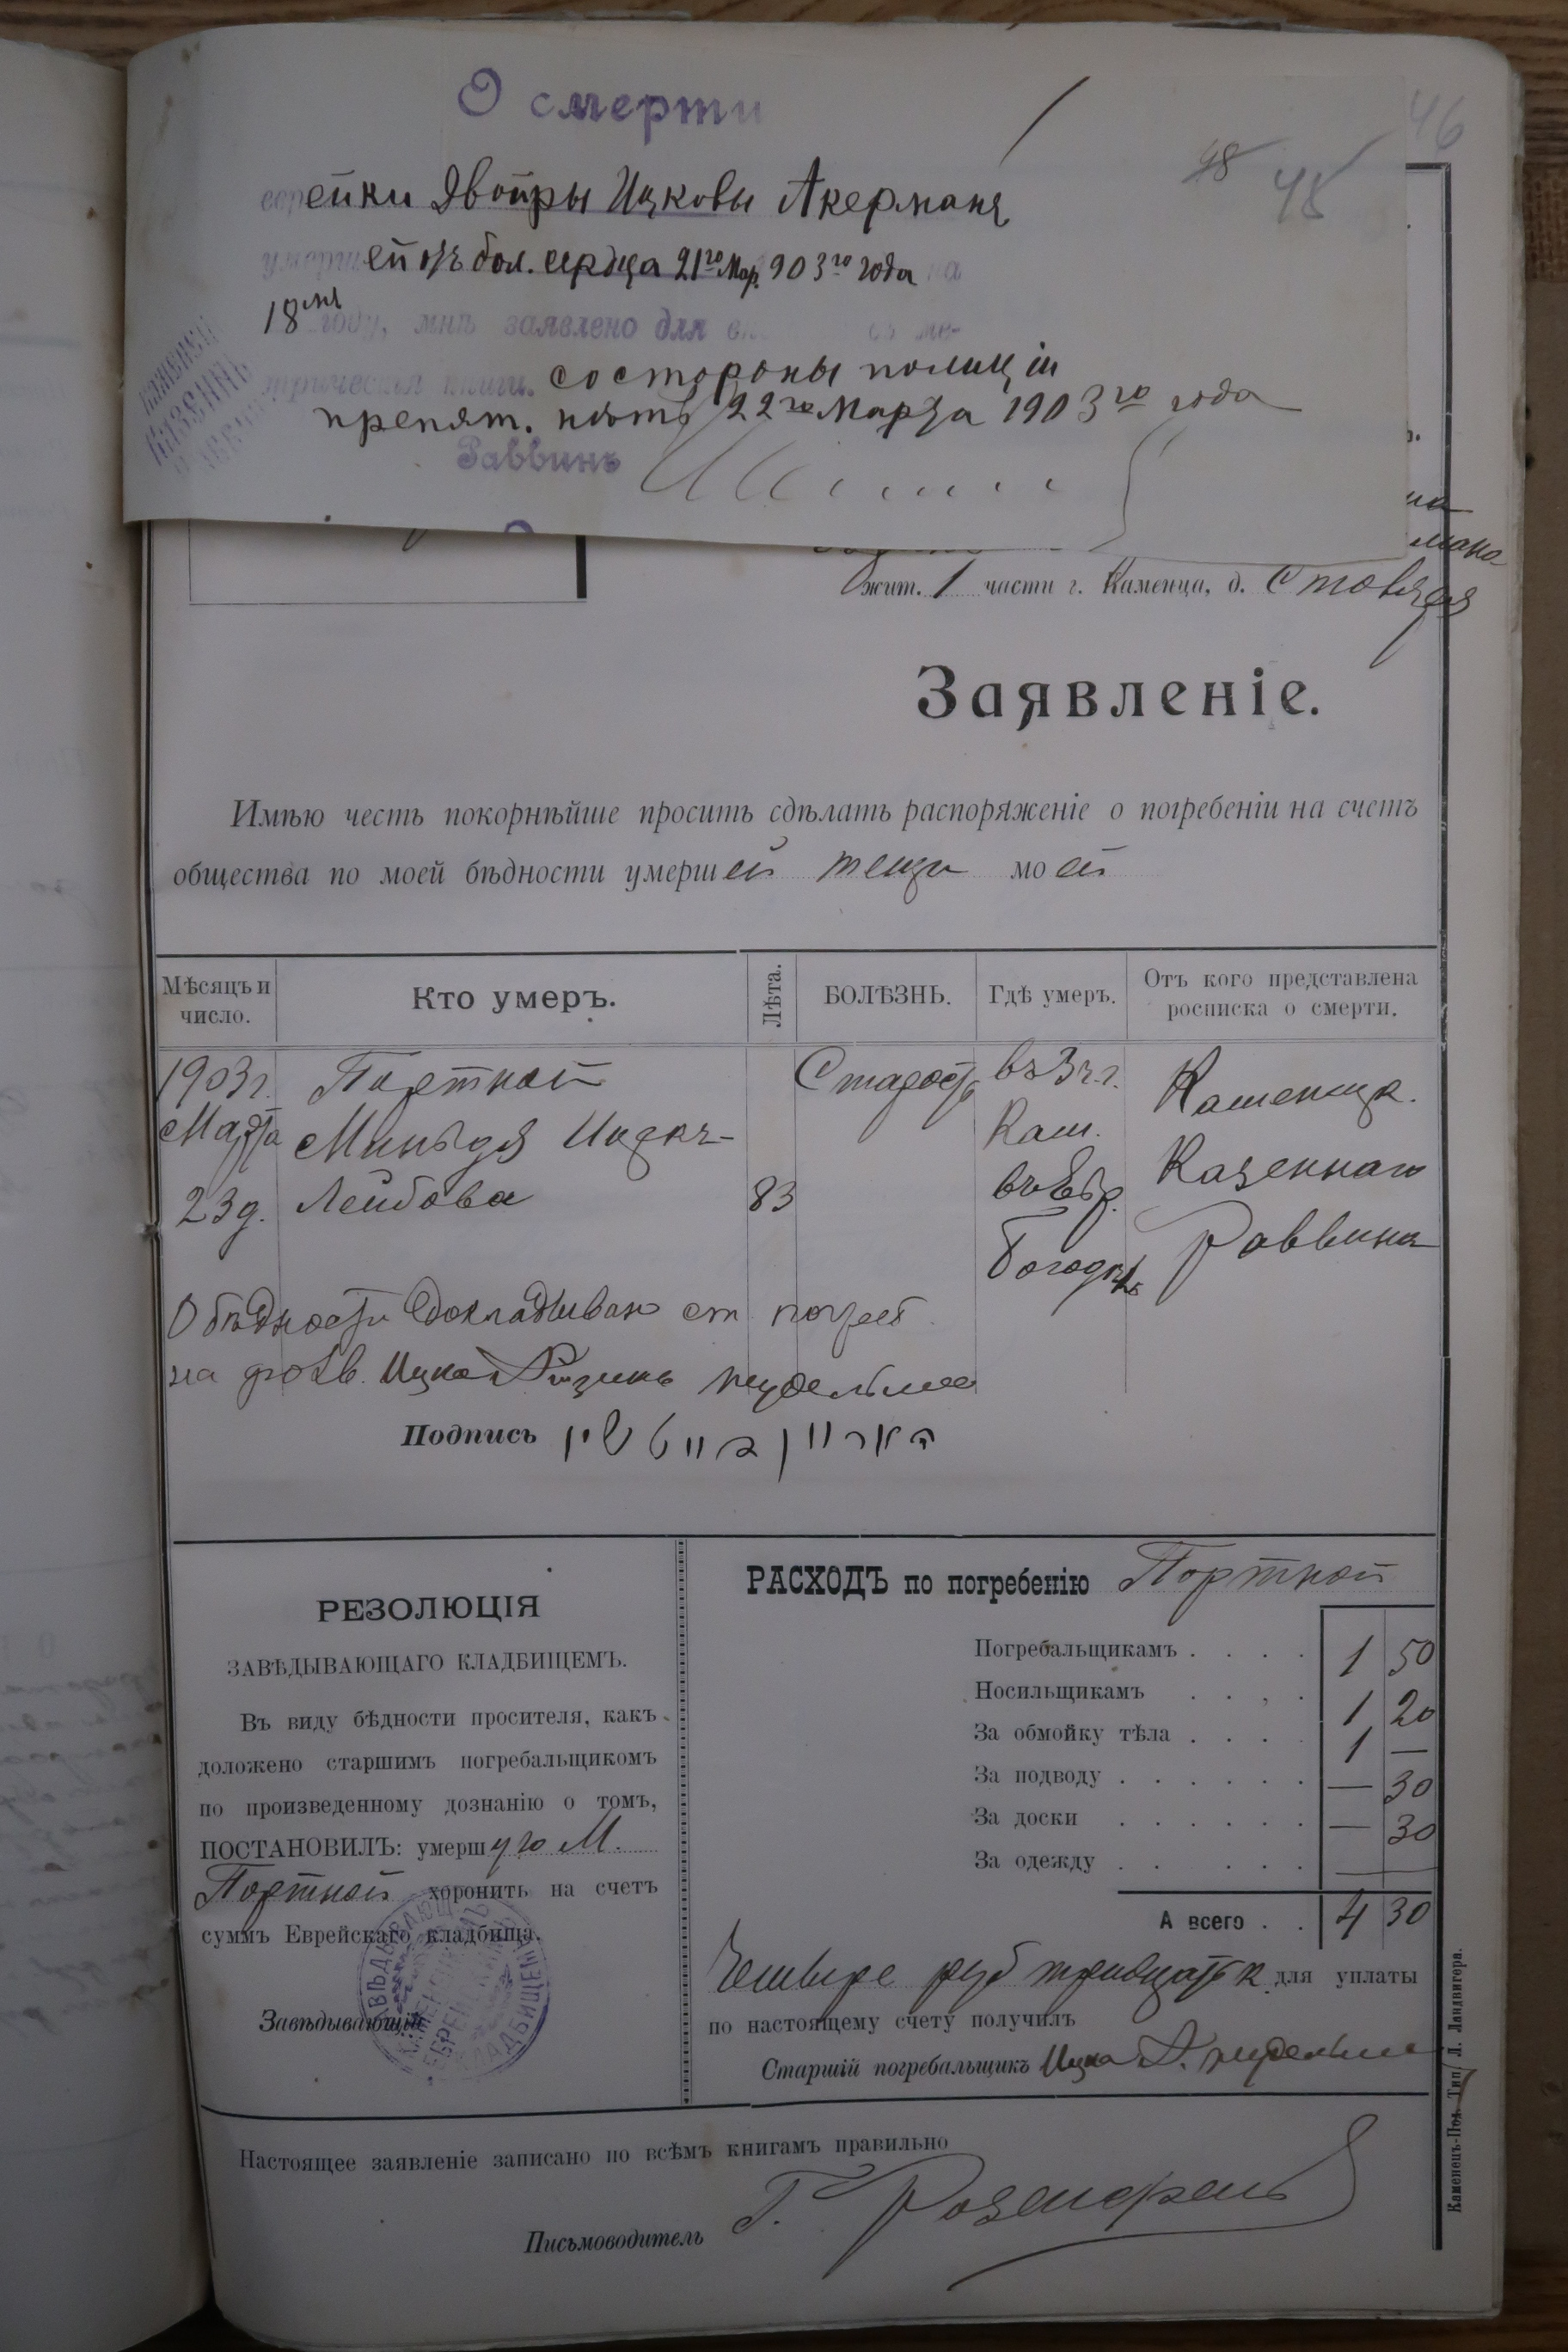 46
О смерти
48 45
еврейки Двойры Ицковы Акерманъ
умершей отъ бол. сердца 21го Мар. 903го года на
18мъ году, мнѣ заявлено для
метрическія книги. со стороны полиціи
препят. нѣтъ 22го Марта 1903го года
Раввинъ
жит. 1 части г. Каменца, д.
Заявленіе.
Имѣю честь покорнѣйше просить сдѣлать распоряженіе о погребеніи на счетъ
общества по моей бѣдности умершей тещи моей
Мѣсяцъ и число. Кто умеръ. Лѣта. БОЛѢЗНЬ. Гдѣ умеръ. Отъ кого представлена росписка о смерти.
1903 г. Портной Старость въ 3 ч. г. Каменецк.
Марта Миндя Ицка- Кам. Казеннаго
23 д. Лейбова 83 въ Евр. Раввина
Богодѣл.
О бѣдности докладывал ст. погреб.
Ицка
Подпись
РЕЗОЛЮЦІЯ
ЗАВѢДЫВАЮЩАГО КЛАДБИЩЕМЪ.
Въ виду бѣдности просителя, какъ
доложено старшимъ погребальщикомъ
по произведенному дознанію о томъ,
ПОСТАНОВИЛЪ: умершую М.
Портной хоронить на счетъ
суммъ Еврейскаго кладбища.
Завѣдывающій
РАСХОДЪ по погребенію Портной
Погребальщикамъ . . . . 1 50
Носильщикамъ . . . . 1 20
За обмойку тѣла . . . . 1 —
За подводу . . . . . . — 30
За доски . . . . . . — 30
За одежду . . . . . . —
А всего . . 4 30
Четыре руб тридцать к. для уплаты
по настоящему счету получилъ
Старшій погребальщикъ Ицка
Настоящее заявленіе записано по всѣмъ книгамъ правильно
Письмоводитель Г.
Каменецъ-Под. Тип. Л. Ландвигера.